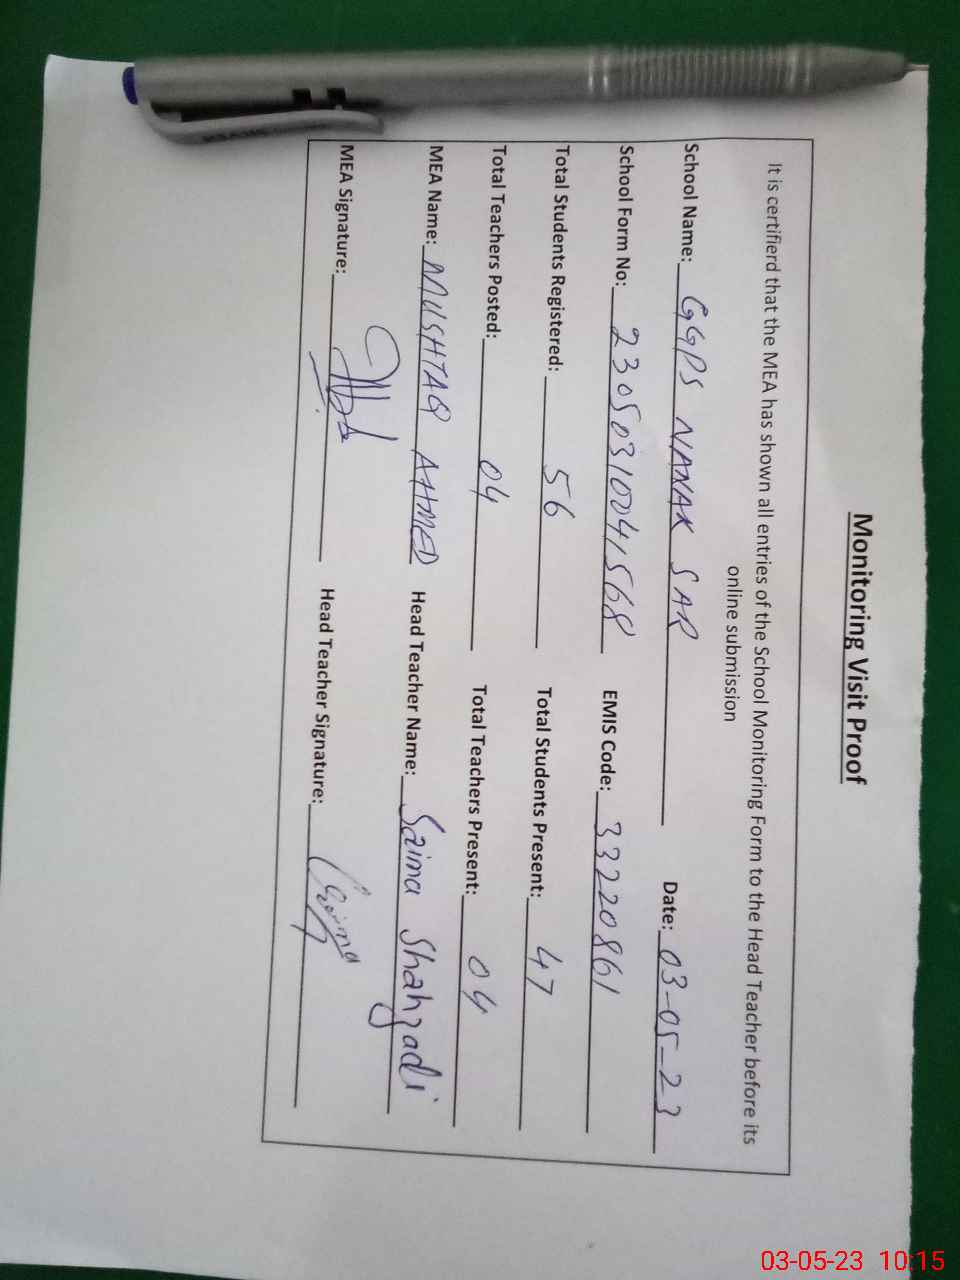 Monitoring Visit Proof
It is certifierd that the MEA has shown all entries of the School Monitoring Form to the Head Teacher before its
online submission
School Name: GGPS NANAK SAR Date: 03-05-23
School Form No: 23050310041568 EMIS Code: 33220861
Total Students Registered: 56 Total Students Present: 47
Total Teachers Posted: 04 Total Teachers Present: 04
MEA Name: MUSHTAQ AHMED Head Teacher Name: Saima Shahzadi
MEA Signature: Head Teacher Signature: Saima
03-05-23 10:15